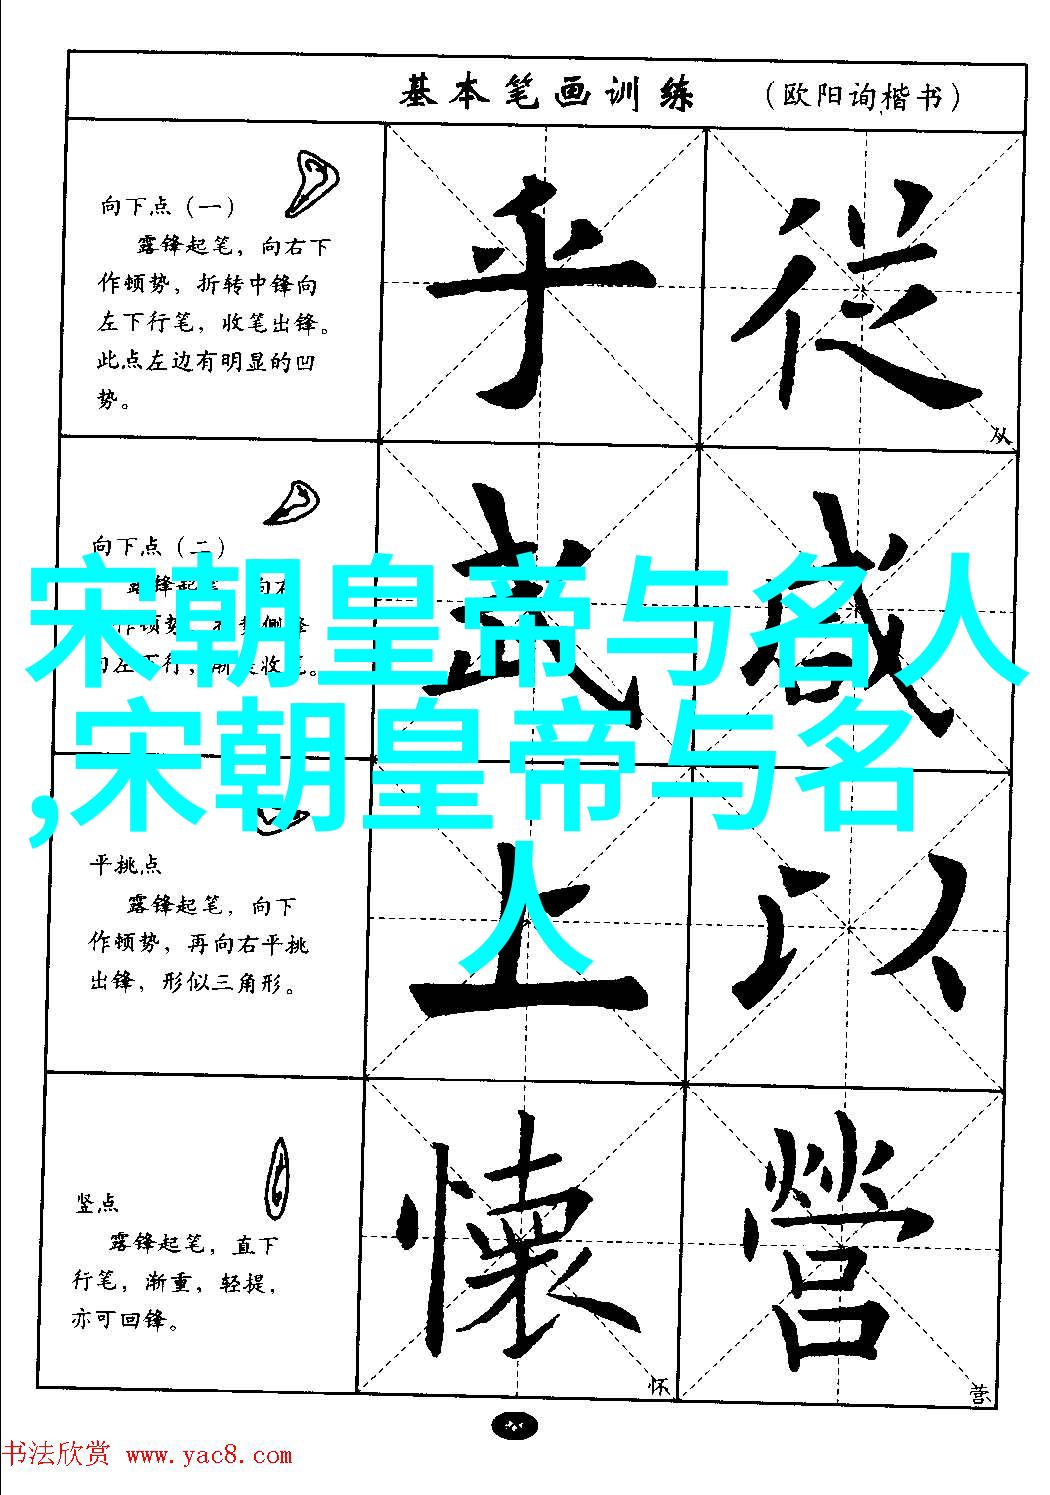 基本笔画训练 （欧阳询楷书）
向下点（一）
露锋起笔，向右下
作顿势，折转中锋向
左下行笔，收笔出锋。
此点左边有明显的凹
势。
乎 従
从
向下点（二）
露锋起笔
作顿势
武 咸
宋朝皇帝与名人
,宋朝皇帝与名
人
平挑点
露锋起笔，向下
作顿势，再向右平挑
出锋，形似三角形。
上 以
竖点
露锋起笔，直下
行笔，渐重，轻提，
亦可回锋。
懷 營
怀 营
书法欣赏 www.yac8.com